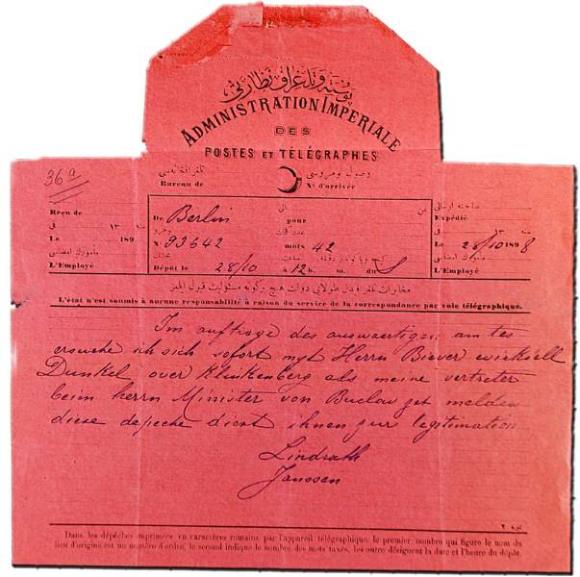 پوسته و تلغراف نظارتی
ADMINISTRATION IMPERIALE
DES
POSTES ET TÉLÉGRAPHES
36a
Bureau de
N° d'arrivée
Reçu de
De Berlin pour
Expédié
Le 189
N° 93642 mots 42
Le 28/10 1898
L'Employé
Dépôt le 28/10 à 12 h. m. du S
L'Employé
L'état n'est soumis à aucune responsabilité à raison du service de la correspondance par voie télégraphique.
Im auftrage des auswaertigen amtes
ersuche ich sich sofort myt Herrn Biever
Dunkel over Klinkenberg als meine vertreter
beim herrn Minister von Buelow zet melden
diese depeche dient ihnen zur legitimation
Lindrath
Janssen
Dans les dépêches imprimées en caractères romains par l'appareil télégraphique, le premier nombre qui figure le nom du
lieu d'origine est un numéro d'ordre, le second indique le nombre des mots taxés, les autres désignent la date et l'heure du dépôt.